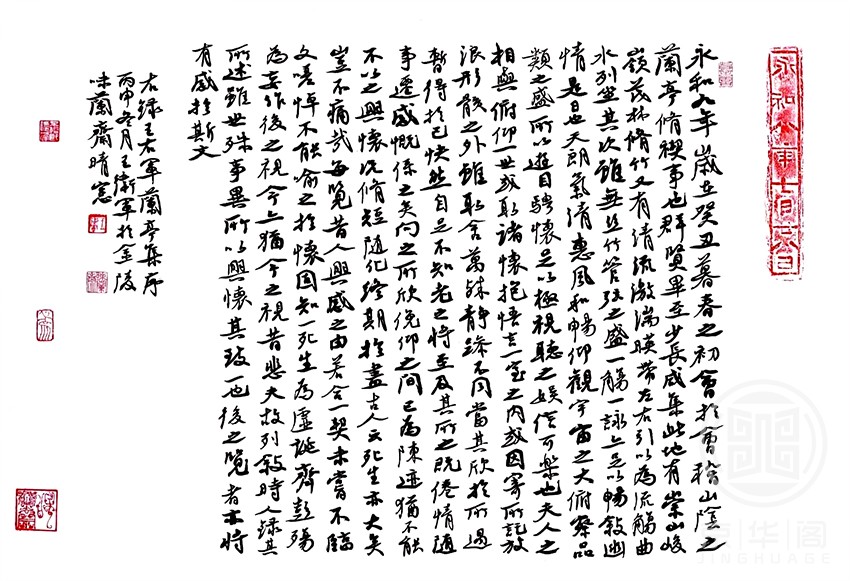 永和九年歲在癸丑暮春之初會於會稽山陰之
蘭亭脩禊事也群賢畢至少長咸集此地有崇山峻
嶺茂林脩竹又有清流激湍暎帶左右引以為流觴曲
水列坐其次雖無絲竹管弦之盛一觴一詠亦足以暢敘幽
情是日也天朗氣清惠風和暢仰觀宇宙之大俯察品
類之盛所以遊目騁懷足以極視聽之娛信可樂也夫人之
相與俯仰一世或取諸懷抱悟言一室之內或因寄所託放
浪形骸之外雖取舍萬殊靜躁不同當其欣於所遇
暫得於己快然自足不知老之將至及其所之既倦情隨
事遷感慨係之矣向之所欣俛仰之間已為陳迹猶不能
不以之興懷況脩短隨化終期於盡古人云死生亦大矣
豈不痛哉每覽昔人興感之由若合一契未嘗不臨
文嗟悼不能喻之於懷固知一死生為虛誕齊彭殤
為妄作後之視今亦猶今之視昔悲夫故列敘時人錄其
所述雖世殊事異所以興懷其致一也後之覽者亦將
有感於斯文
右錄王右軍蘭亭集序
丙申冬月王衛軍於金陵
味蘭齋晴窗
京华阁
JINGHUAGE